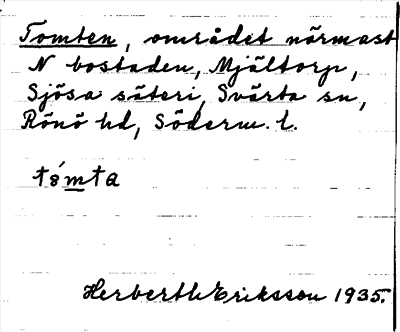 Tomten, området närmast
N bostaden, Mjältorp,
Sjösa säteri, Svärta sn,
Rönö hd, Söderm. l.
Herbert Eriksson 1935.